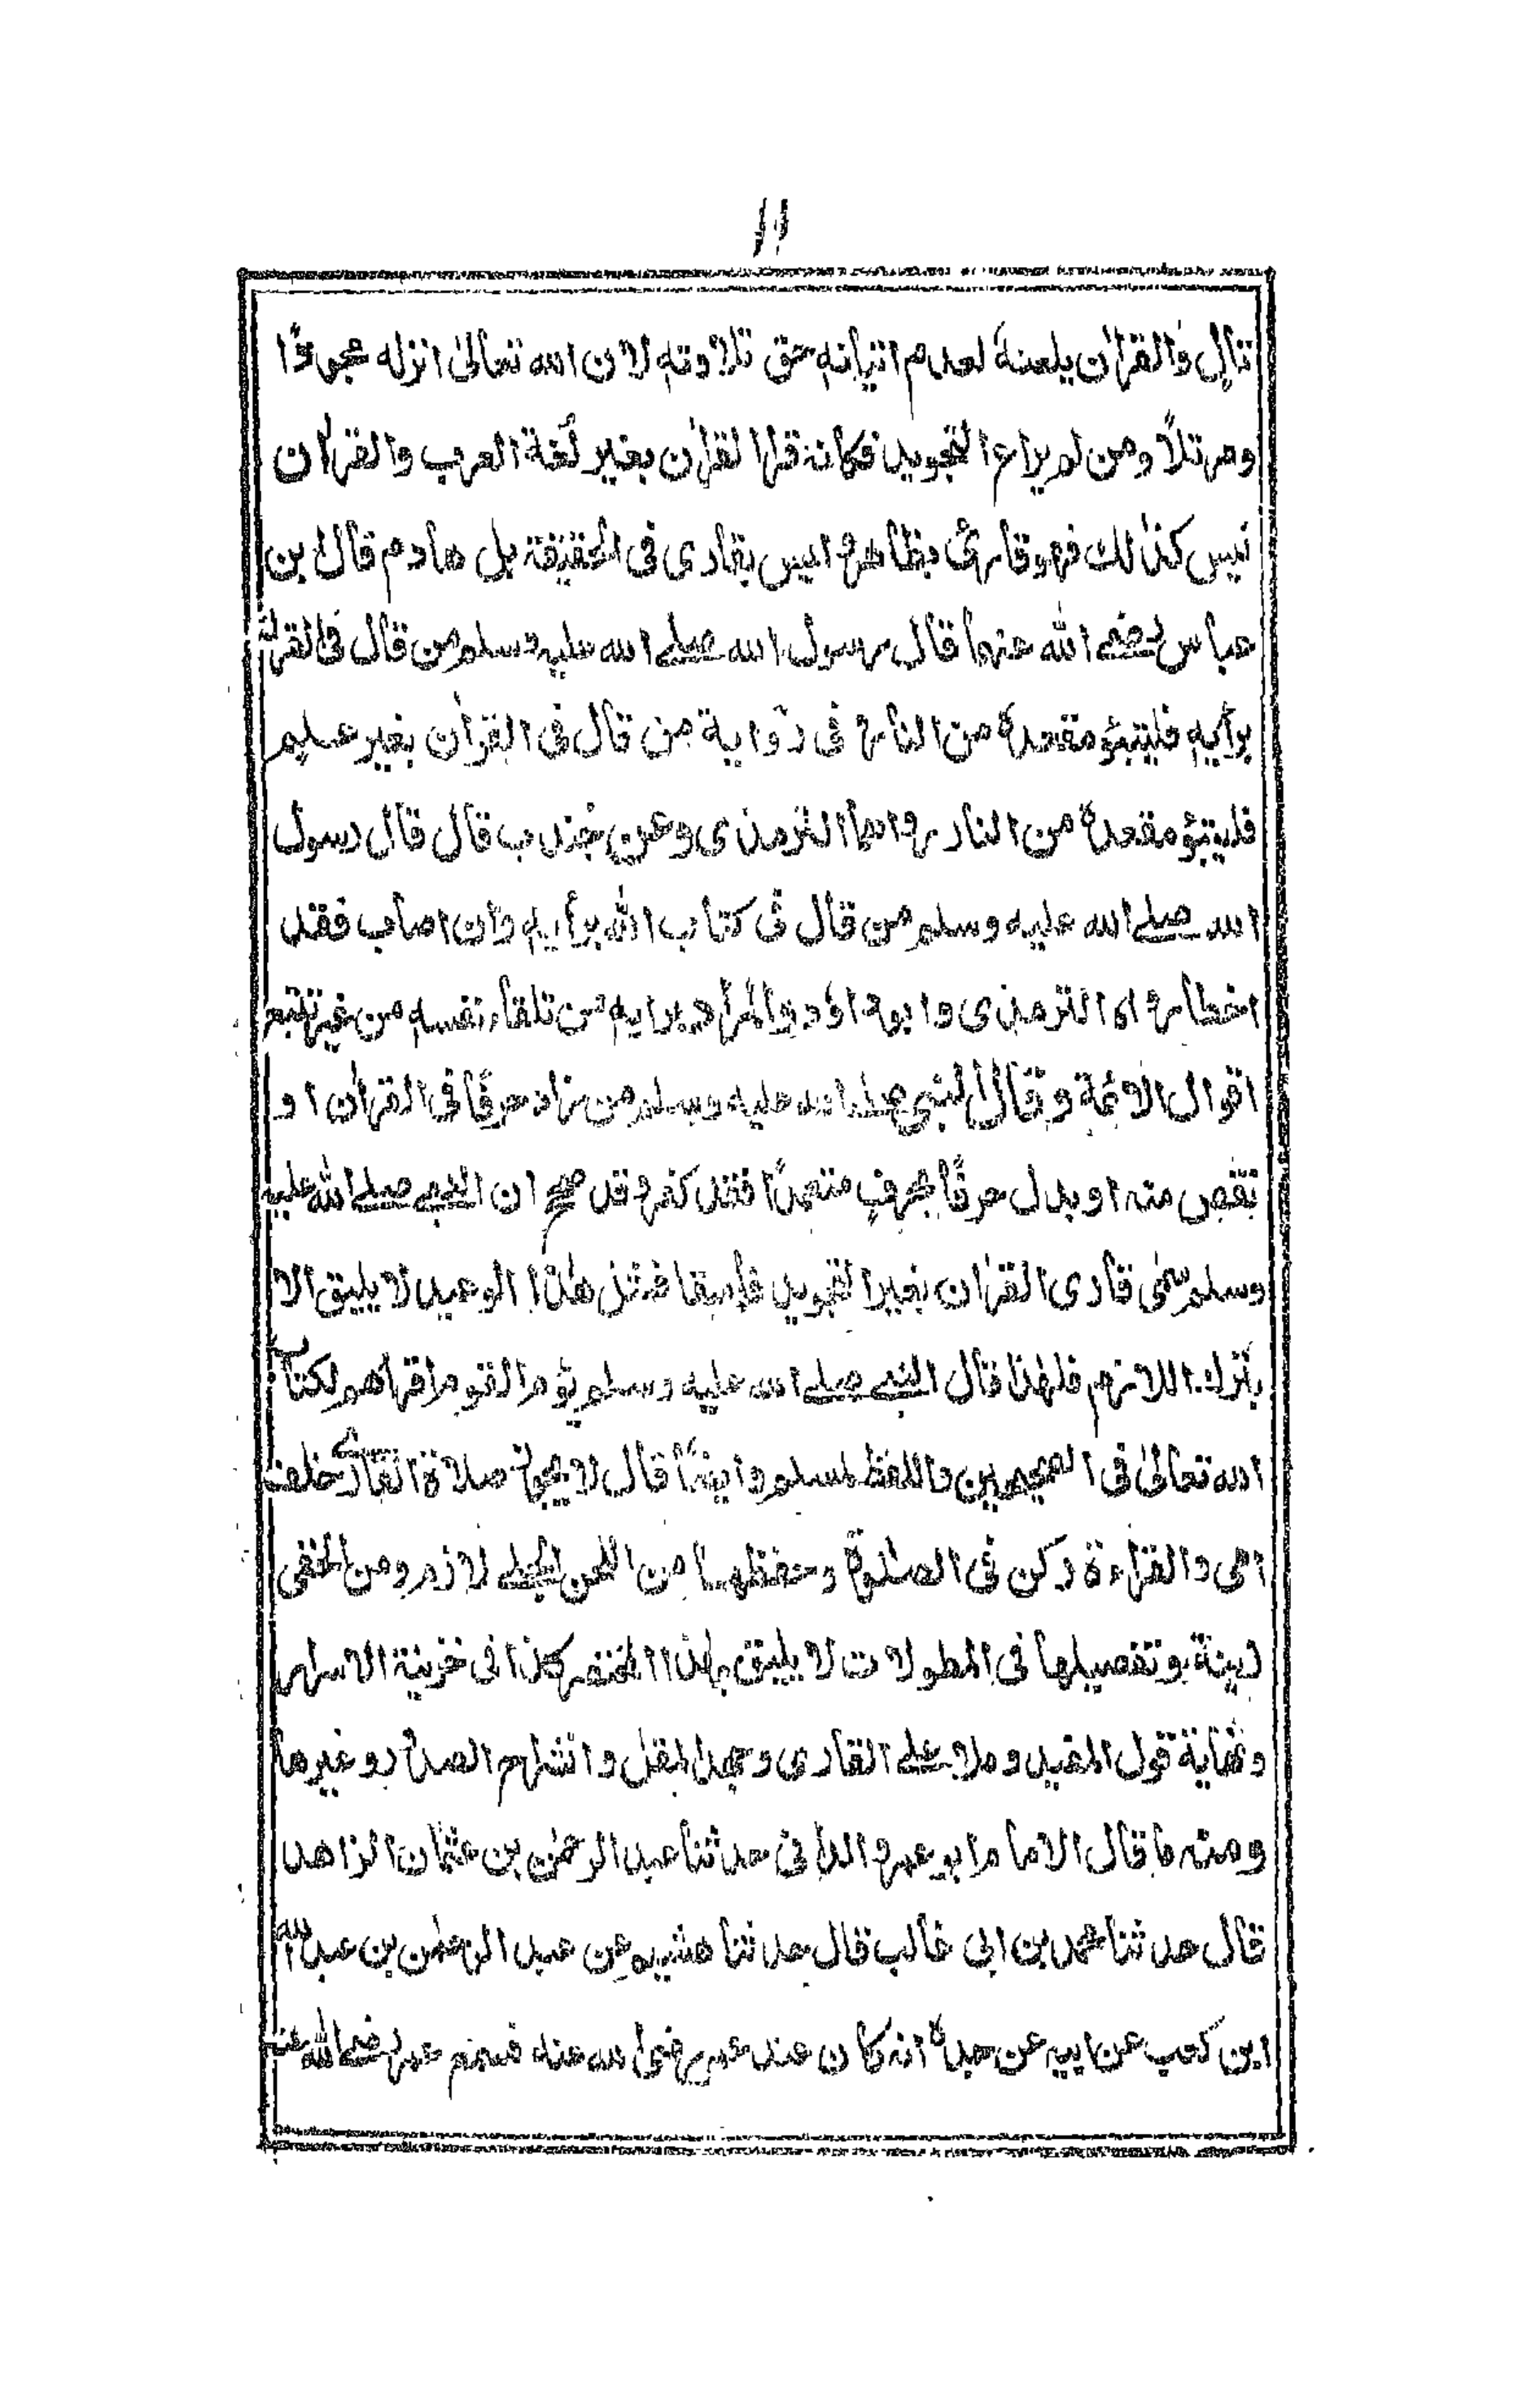 ١١
تالٍ والقرآن يلعنهُ لعدم اتيانهٖ حق تلاوتهٖ لان الله تعالیٰ انزله مجوداً
ومرتلاً ومن لم يراع التجويد فكانه قرا القرآن بغير لُغة العرب والقرآن
ليس كذالك فهو قارئ بظاهره ليس بقاری فی الحقيقة بل هادم قال ابن
عباس رضے الله عنهما قال رسول الله صلے الله عليه وسلم من قال فی القرآن
برأيهٖ فليتبؤ مقعدهٗ من النار و فی رواية من قال فی القرآن بغير علم
فليتبؤ مقعدهٗ من النار رواهما الترمذی وعن جندب قال قال رسول
الله صلے الله عليه وسلم من قال فی كتاب الله برأيهٖ وان اصاب فقد
اخطا رواه الترمذی وابوداؤد والمراد برايهٖ من تلقاء نفسهٖ من غير تتبع
اقوال الائمة وقال النبی صلے الله عليه وسلم من زاد حرفاً فی القرآن او
نقص منه او بدل حرفاً بحرفٍ متعمداً فقد كفر وقد صح ان النبے صلے الله عليه
وسلم سمّٰی قاری القرآن بغير التجويد فاسقا فمثل هٰذا الوعيد لا يليق الا
بترك اللازم فلهٰذا قال النبے صلے الله عليه وسلم يؤم القوم اقرأهم لكتاب
الله تعالیٰ فی الصحيحين واللفظ لمسلم وايضاً قال لا يجوز صلاة القاری خلف
امی والقراءة ركن فی الصلٰوة وحفظها من اللحن الجلے لازم ومن الخفی
زينة وتفصيلها فی المطولات لا يليق بهٰذا المختصر كذا فی خزينة الاسرار
ونهاية قول المفيد وملا علے القاری وجهد المقل وانشراح الصدر وغيرها
ومنه ما قال الامام ابو عمرو الدانی حدثنا عبد الرحمٰن بن عثمان الزاهد
قال حدثنا محمد بن ابی غالب قال حدثنا هشيم عن عبد الرحمٰن بن عبد الله
ابن كعب عن ابيه عن جدهٖ انه كان عند عمر رضی الله عنه فسمع عمر رضی الله عنه